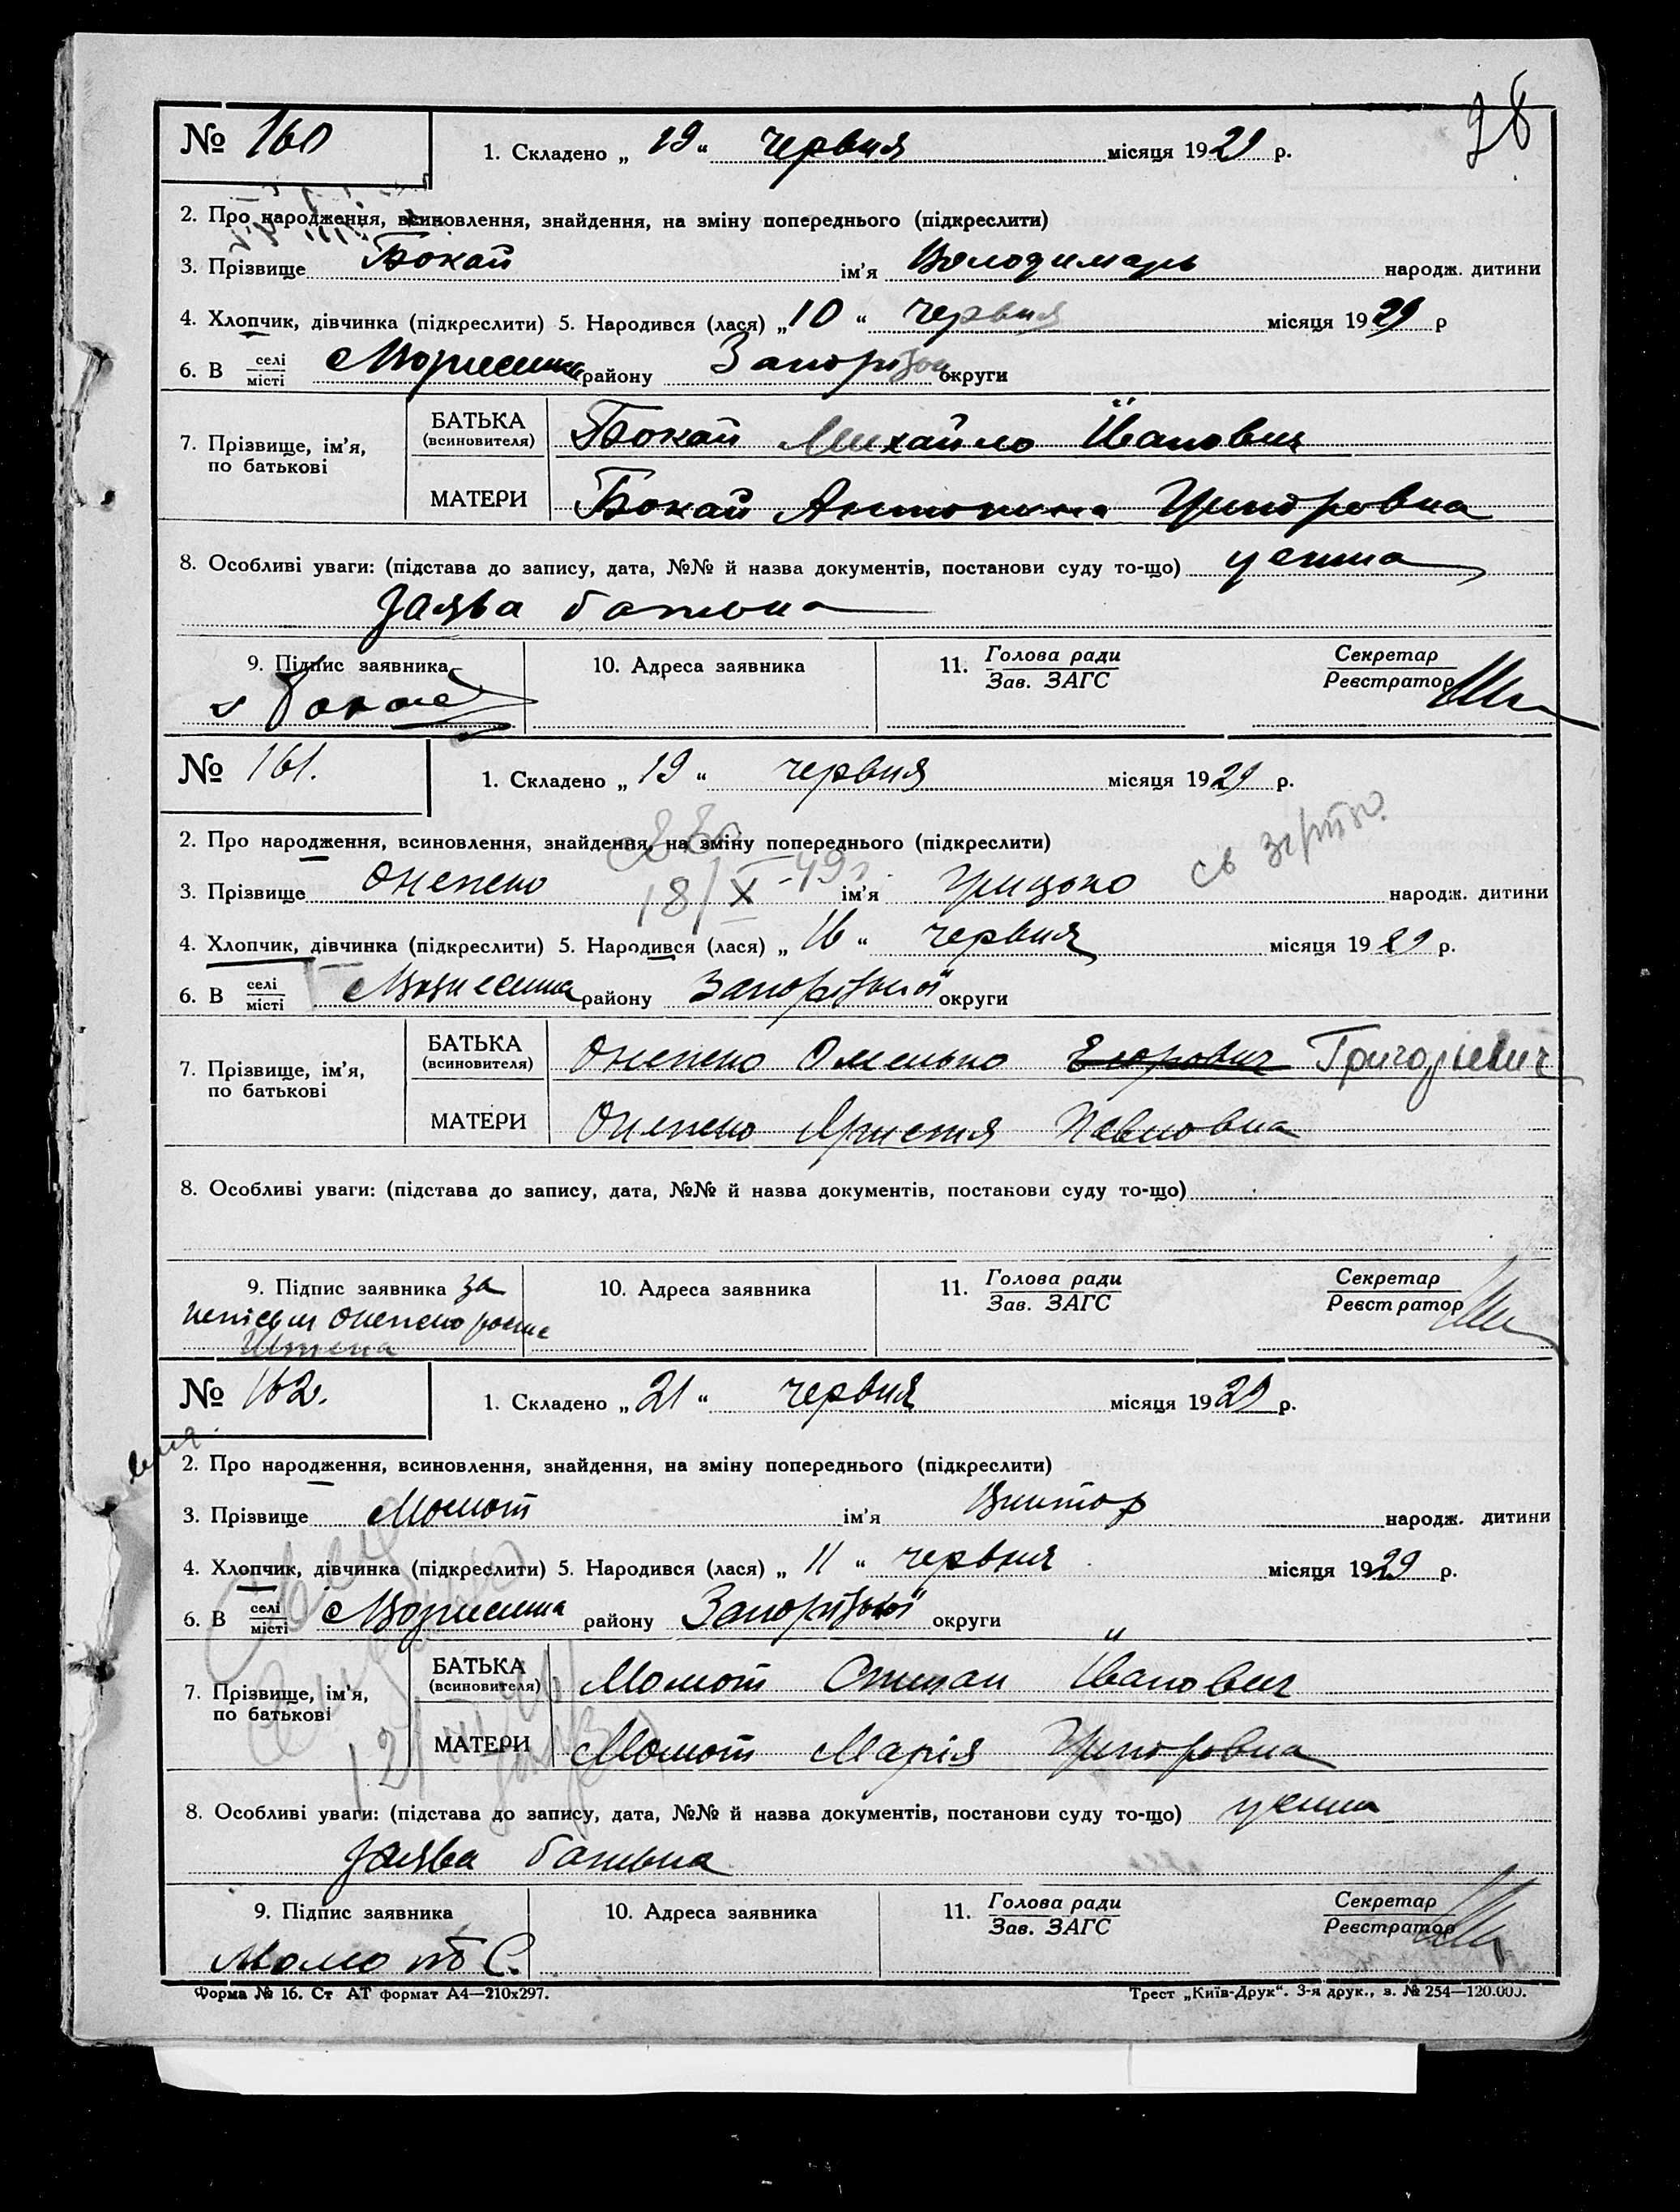 98
№ 160
1. Складено „ 19 “ червня місяця 1929 р.
2. Про народження, всиновлення, знайдення, на зміну попереднього (підкреслити)
3. Прізвище Бокай ім’я Володимарь народж. дитини
4. Хлопчик, дівчинка (підкреслити) 5. Народився (лася) „ 10 “ червня місяця 1929 р
6. В селі/місті району округи
7. Прізвище, ім’я, по батькові
БАТЬКА (всиновителя) Бокай Михайло Іванович
МАТЕРИ Бокай Антонина Григоровна
8. Особливі уваги: (підстава до запису, дата, №№ й назва документів, постанови суду то-що) устна
заява батька
9. Підпис заявника 10. Адреса заявника 11. Голова ради/Зав. ЗАГС Секретар/Реєстратор
№ 161.
1. Складено „ 19 “ червня місяця 1929 р.
2. Про народження, всиновлення, знайдення, на зміну попереднього (підкреслити)
18/X-49
3. Прізвище ім’я Грицько народж. дитини
4. Хлопчик, дівчинка (підкреслити) 5. Народився (лася) „ 16 “ червня місяця 1929 р.
6. В селі/місті району Запорізької округи
7. Прізвище, ім’я, по батькові
БАТЬКА (всиновителя) Омелько Егорович Григорьевич
МАТЕРИ Павловна
8. Особливі уваги: (підстава до запису, дата, №№ й назва документів, постанови суду то-що)
9. Підпис заявника за 10. Адреса заявника 11. Голова ради/Зав. ЗАГС Секретар/Реєстратор
№ 162.
1. Складено „ 21 “ червня місяця 1929 р.
2. Про народження, всиновлення, знайдення, на зміну попереднього (підкреслити)
3. Прізвище Момот ім’я Виктор народж. дитини
4. Хлопчик, дівчинка (підкреслити) 5. Народився (лася) „ 11 “ червня місяця 1929 р.
6. В селі/місті району Запорізької округи
7. Прізвище, ім’я, по батькові
БАТЬКА (всиновителя) Момот Степан Іванович
МАТЕРИ Момот Марія Григоровна
8. Особливі уваги: (підстава до запису, дата, №№ й назва документів, постанови суду то-що) устна
заява батька
9. Підпис заявника 10. Адреса заявника 11. Голова ради/Зав. ЗАГС Секретар/Реєстратор
Момот С.
Форма № 16. Ст АТ формат А4—210x297. Трест „Київ-Друк“. 3-я друк., з. № 254—120.000.